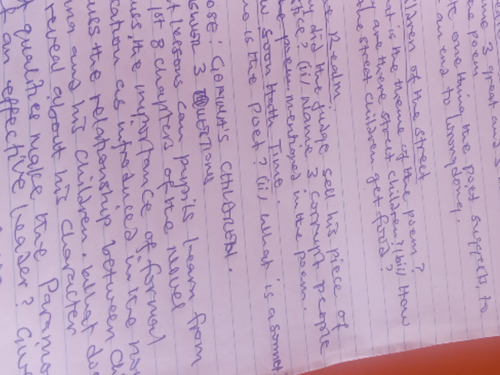 ame 3 great and
te one thing the poet suggests to
an end to wrongdoing.
children of the street
at is the theme of the poem?
y are there street children? (iii) How
the street children get food?
Realm
y did the judge sell his piece of
tice? (ii) Name 3 corrupt people
the poem mentioned in the poem.
soon hath Time.
ho is the Poet? (ii) What is a sonnet
OSE: GORNIA'S CHILDREN.
Answer 3 Questions
t lessons can pupils learn from
pt 8 chapters of the novel
uss the importance of formal
cation as introduced in the nov
uss the relationship between Ch
and his children. What do
reveal about his character
t qualities make the Paramou
an effective leader? Give